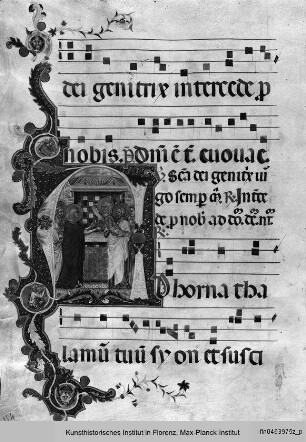 dei genitrix intercede p
nobis. p dm̄ ē t̄. euouae.
℣. Scā dei genitrix uir
go semp m̄. ℟. Int̄ce
de p nob ad
dhorna tha
lamū tuū syon et susci
Kunsthistorisches Institut in Florenz, Max-Planck-Institut
fln0463976z_p